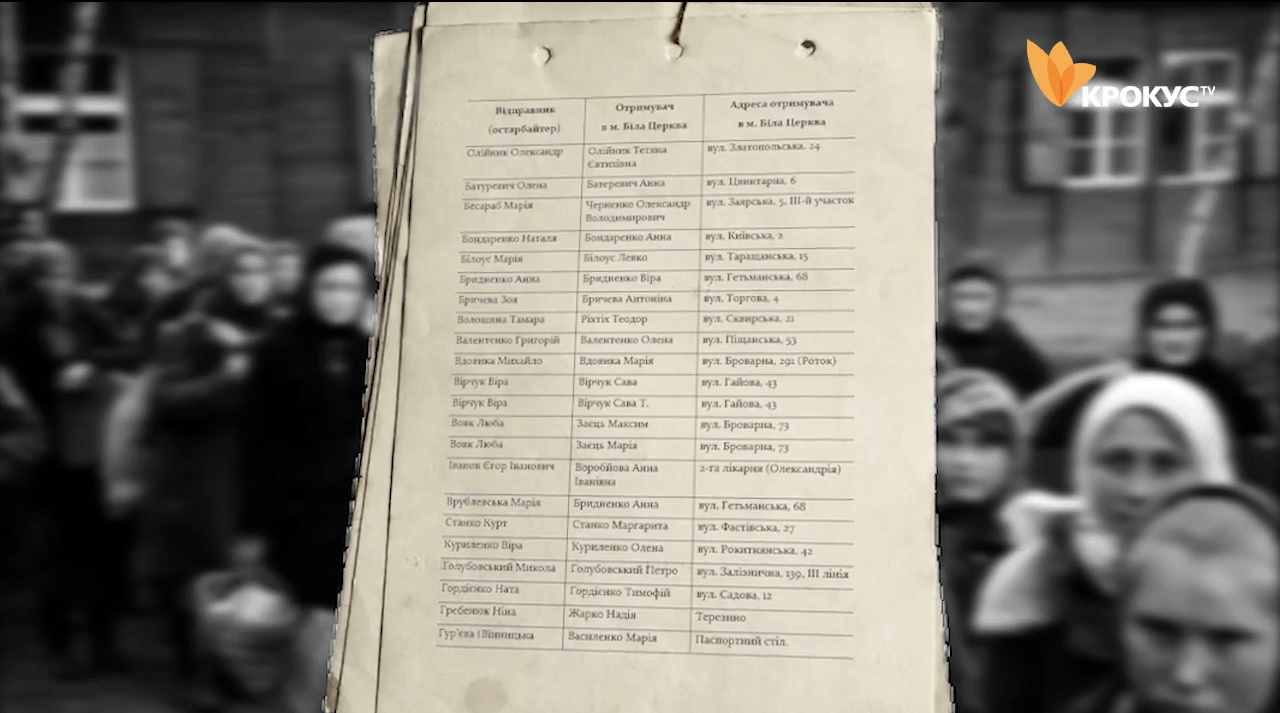 КРОКУС TV
Відправник Отримувач Адреса отримувача
(остарбайтер) в м. Біла Церква в м. Біла Церква
Олійник Олександр Олійник Тетяна вул. Златопольська, 24
Євтихівна
Батуревич Олена Батеревич Анна вул. Цвинтарна, 6
Бесараб Марія Черненко Олександр вул. Заярська, 5, ІІІ-й участок
Володимирович
Бондаренко Наталя Бондаренко Анна вул. Київська, 2
Білоус Марія Білоус Левко вул. Таращанська, 15
Бридненко Анна Бридненко Віра вул. Гетьманська, 68
Бричева Зоя Бричева Антоніна вул. Торгова, 4
Волошина Тамара Ріхтіх Теодор вул. Сквирська, 21
Валентенко Григорій Валентенко Олена вул. Піщанська, 53
Вдовика Михайло Вдовика Марія вул. Броварна, 291 (Роток)
Вірчук Віра Вірчук Сава вул. Гайова, 43
Вірчук Віра Вірчук Сава Т. вул. Гайова, 43
Вовк Люба Заєць Максим вул. Броварна, 73
Вовк Люба Заєць Марія вул. Броварна, 73
Іванов Єгор Іванович Воробйова Анна 2-га лікарня (Олександрія)
Іванівна
Врублевська Марія Бридненко Анна вул. Гетьманська, 68
Станко Курт Станко Маргарита вул. Фастівська, 27
Куриленко Віра Куриленко Олена вул. Рокитнянська, 42
Голубовський Микола Голубовський Петро вул. Залізнична, 139, ІІІ лінія
Гордієнко Ната Гордієнко Тимофій вул. Садова, 12
Гребенюк Ніна Жарко Надія Терезино
Гур'єва (Вінницька Василенко Марія Паспортний стіл.